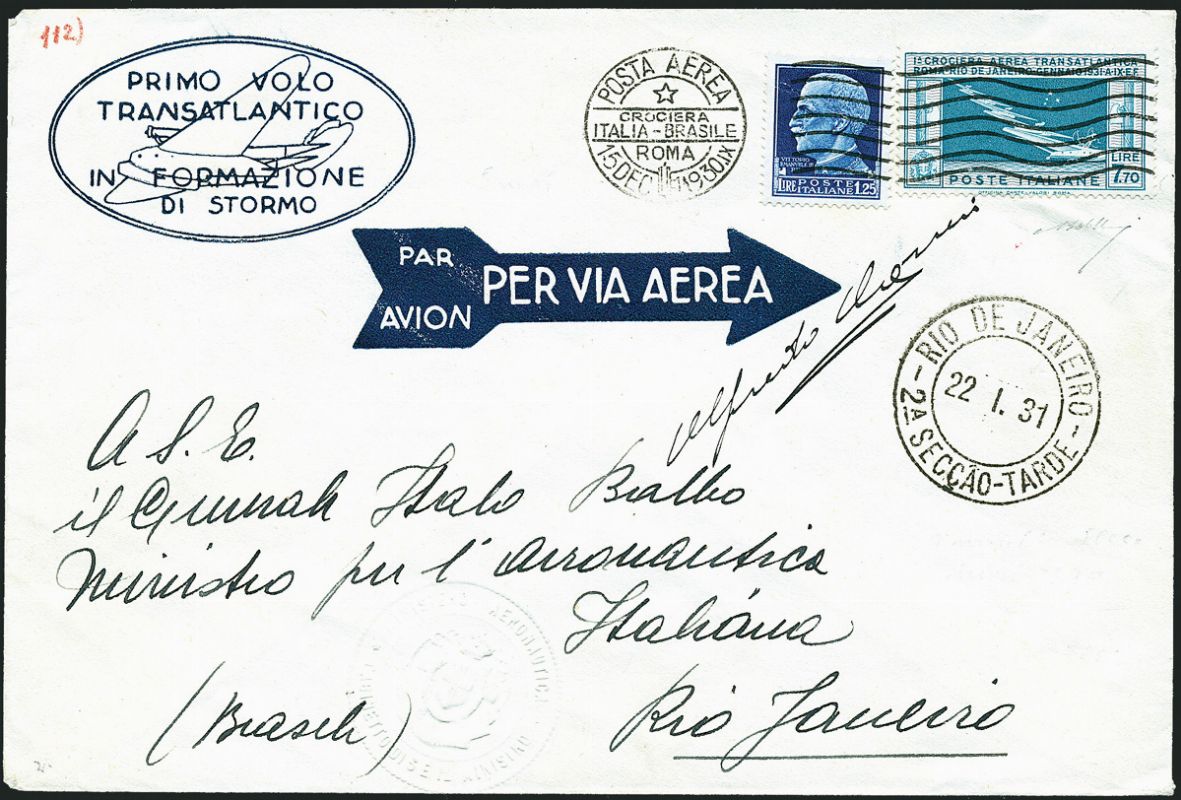 112)
PRIMO VOLO
TRANSATLANTICO
IN FORMAZIONE
DI STORMO
POSTA AEREA
CROCIERA
ITALIA-BRASILE
ROMA
15 DEC 1930 IX
VITTORIO
EMANUELE III
POSTE
LIRE ITALIANE 1.25
Iª CROCIERA AEREA TRANSATLANTICA
ROMA-RIO DE JANEIRO-GENNAIO 1931-A.IX-E.F.
LIRE
7.70
POSTE ITALIANE
PAR
AVION
PER VIA AEREA
Alfredo
-RIO DE JANEIRO-
22 I. 31
2A SECÇÃO-TARDE
A S. E.
il Generale Italo Balbo
Ministro per l'Aeronautica
Italiana
Rio Janeiro
(Brasile)
AERONAUTICA
GABINETTO DI S.E. IL MINISTRO